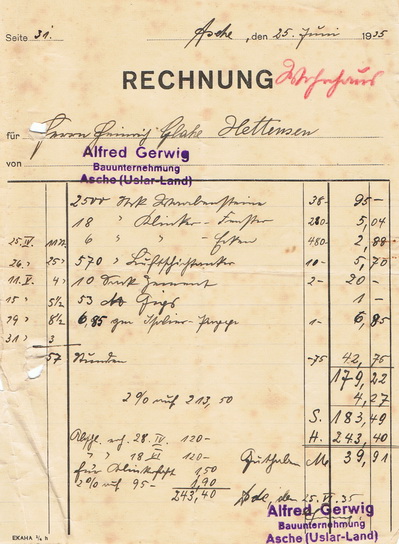 Seite 31. Asche, den 25. Juni 1935
RECHNUNG Wohnhaus
für Herrn Heinrich Hettensen
Alfred Gerwig
von Bauunternehmung
Asche (Uslar-Land)
2500 Stck 38- 95 -
18 " Klinker-Fenster 280- 5,04
25.IV. 6 " " - Ecken 480- 2,88
26. " 25 570 " 10- 5,70
11.V. 4 10 Sack Zement 2- 20 -
15 " 5½ 53 Gips 1 -
19 " 8½ 6,85 qm Isolier-Pappe 1- 6,85
31 " 3
57 Stunden -75 42,75
179,22
2% auf 213,50 4,27
S. 183,49
Abschl. 28. IV. 120- H. 243,40
" " 18 120- Guthaben M 39,91
für 1,50
2% auf 95- 1,90 Asche, den 25.VI.35
243,40
Alfred Gerwig
Bauunternehmung
EKAHA ¼ h Asche (Uslar-Land)